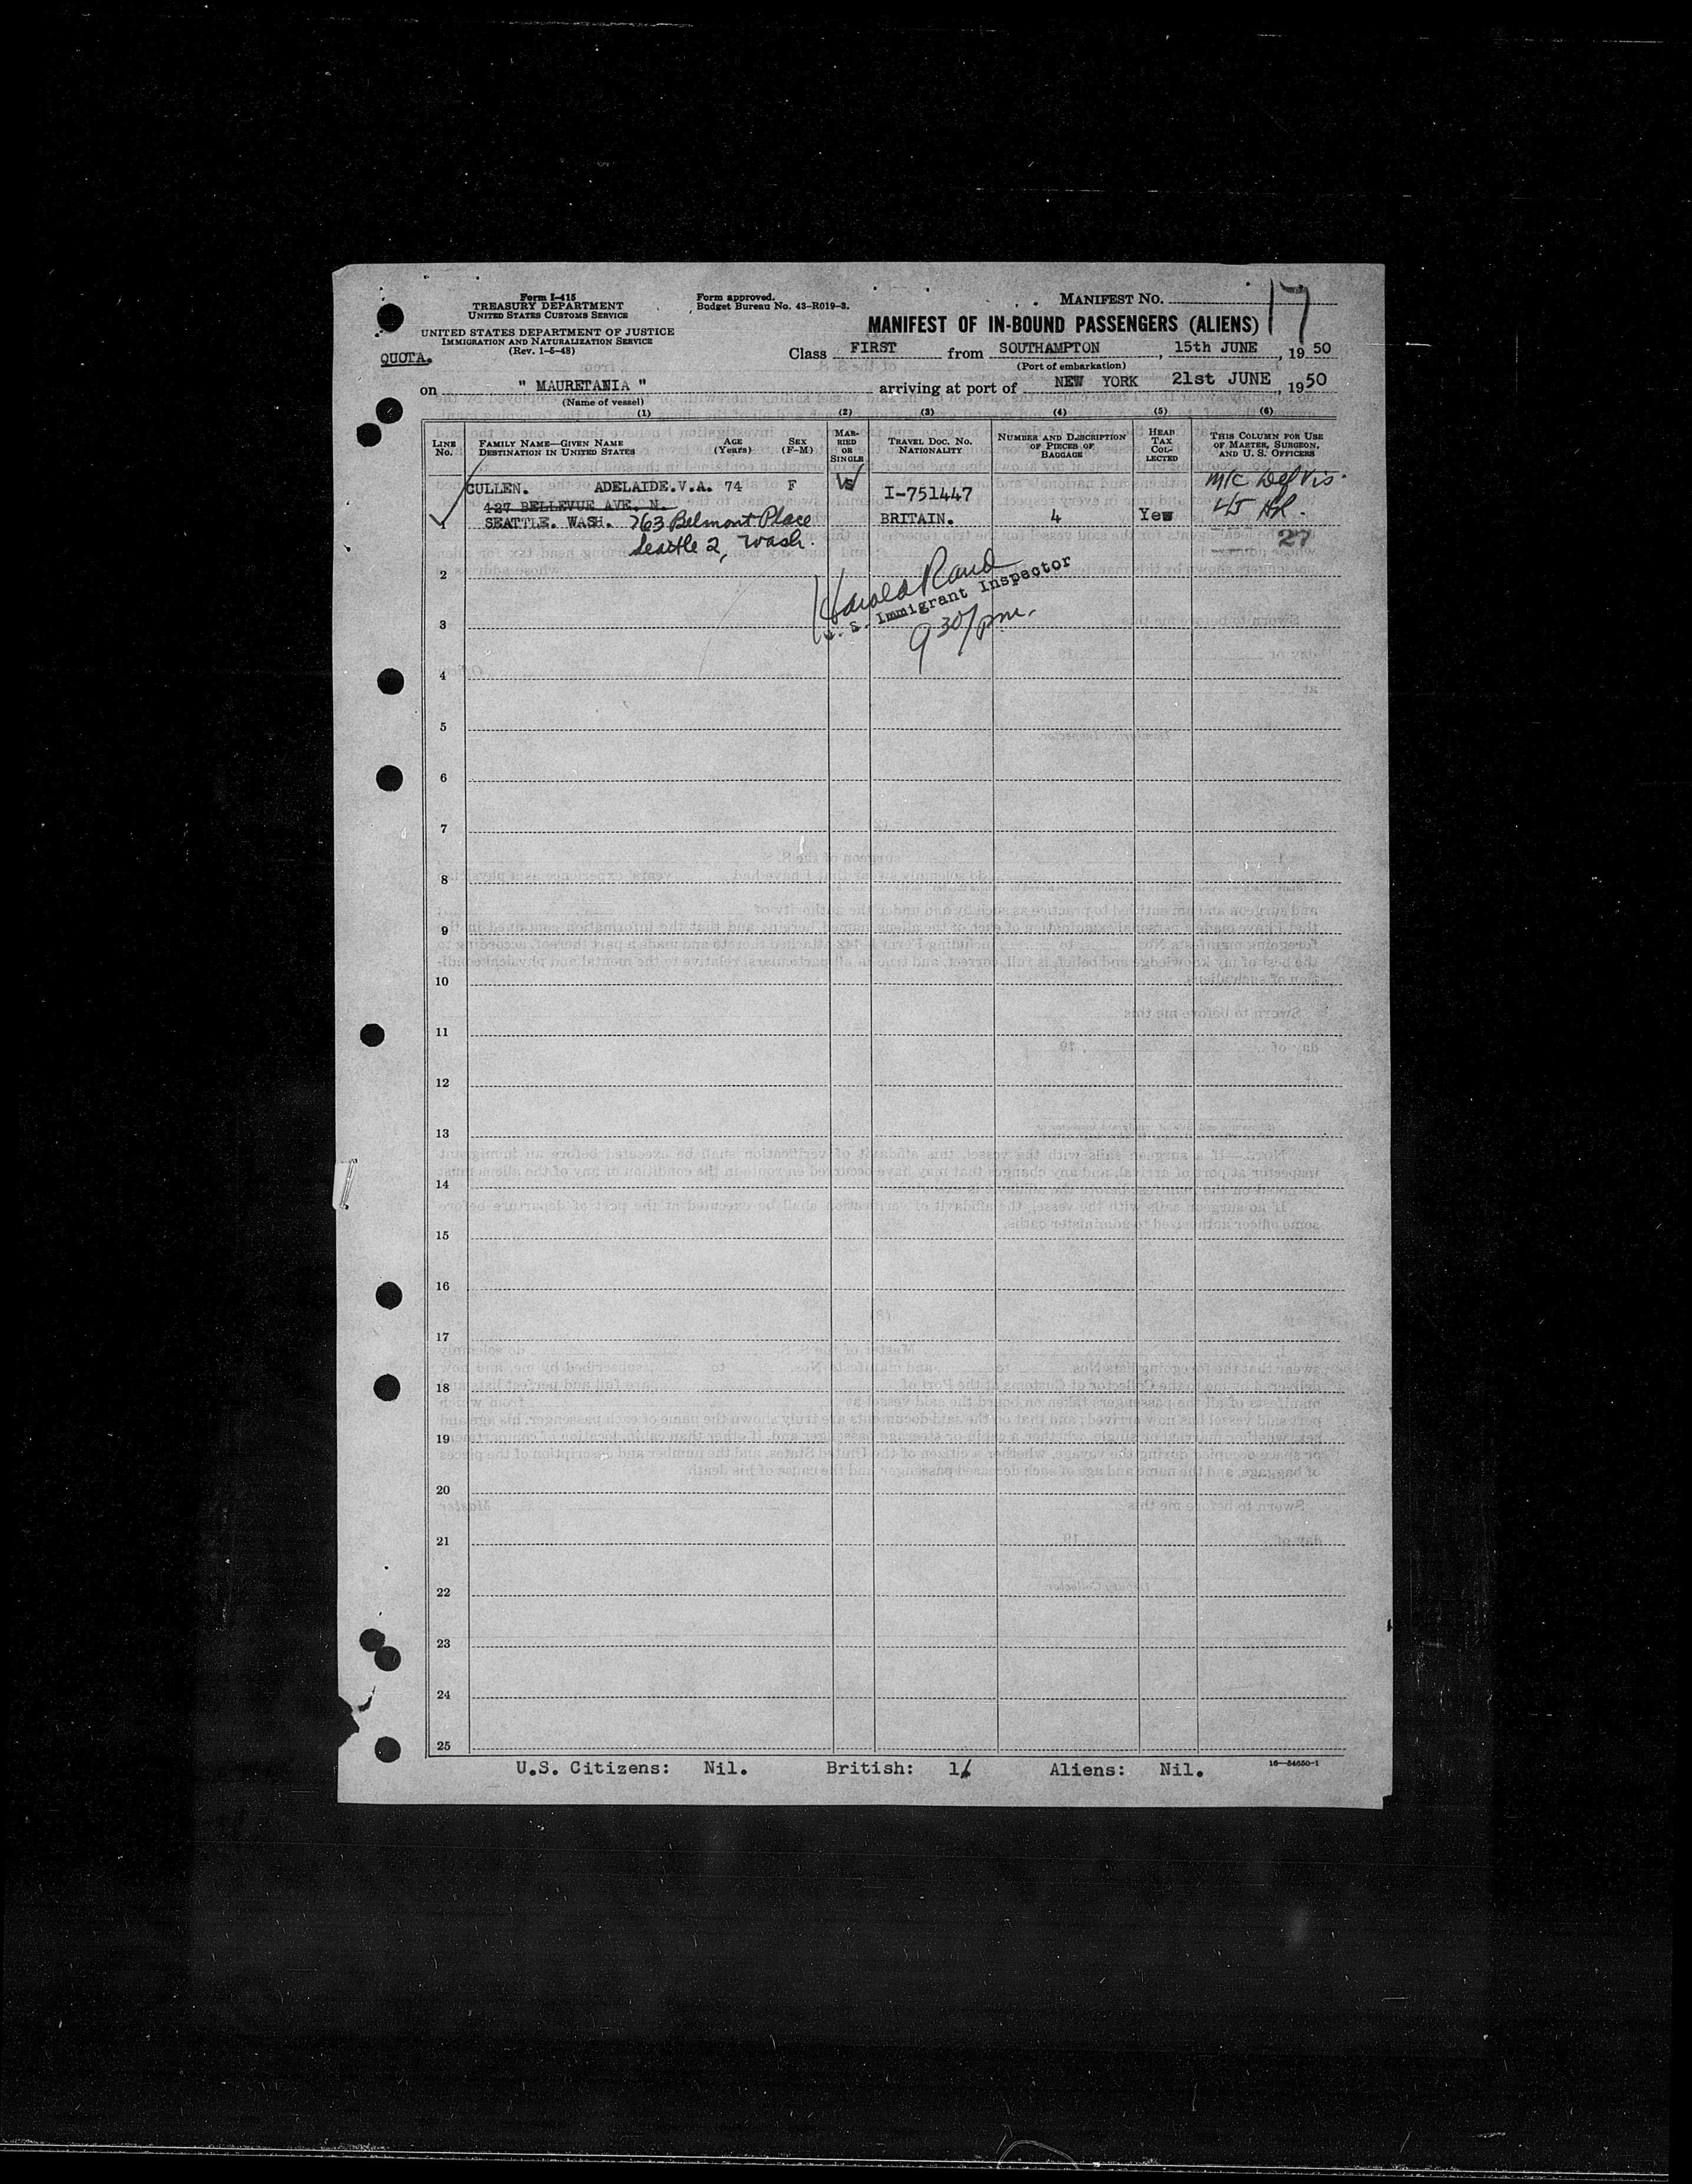 Form I-415
TREASURY DEPARTMENT
UNITED STATES CUSTOMS SERVICE
UNITED STATES DEPARTMENT OF JUSTICE
IMMIGRATION AND NATURALIZATION SERVICE
(Rev. 1-5-48)
Form approved.
Budget Bureau No. 43-R019-3.
MANIFEST NO. 17
MANIFEST OF IN-BOUND PASSENGERS (ALIENS)
QUOTA.
Class FIRST from SOUTHAMPTON, 15th JUNE, 1950
(Port of embarkation)
on " MAURETANIA " arriving at port of NEW YORK 21st JUNE, 1950
(Name of vessel)
(1) (2) (3) (4) (5) (6)
LINE NO. FAMILY NAME—GIVEN NAME DESTINATION IN UNITED STATES AGE (Years) SEX (F-M) MARRIED OR SINGLE TRAVEL DOC. NO. NATIONALITY NUMBER AND DESCRIPTION OF PIECES OF BAGGAGE HEAD TAX COLLECTED THIS COLUMN FOR USE OF MASTER, SURGEON, AND U. S. OFFICERS
CULLEN. ADELAIDE.V.A. 74 F W I-751447 M/C Def Vis.
427 BELLEVUE AVE. N.
1 SEATTLE. WASH. 763 Belmont Place BRITAIN. 4 Yes 45
Seattle 2, Wash. 27
2
Harold Rand
U. S. Immigrant Inspector
9 30/pm.
3
4
5
6
7
8
9
10
11
12
13
14
15
16
17
18
19
20
21
22
23
24
25
U.S. Citizens: Nil. British: 1 Aliens: Nil.
16—54650-1